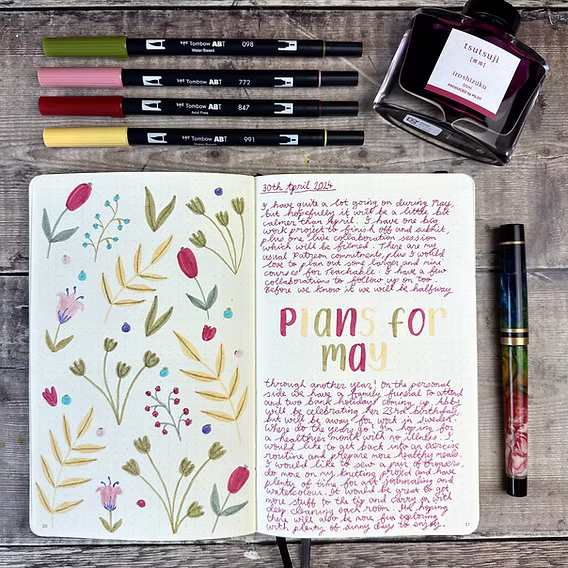 Tombow ABT 098
Water-Based
Tombow ABT 772
Tombow ABT 847
Acid Free
Tombow ABT 991
tsutsuji
iroshizuku
50ml
PRODUCED by PILOT
30th April 2024
I have quite a lot going on during May,
but hopefully it will be a little bit
calmer than April. I have one big
work project to finish off and submit,
plus one live collaboration session
which will be filmed. There are my
usual Patreon commitments, plus I would
love to plan out some larger and mini
courses for Teachable. I have a few
collaborations to follow up on too.
Before we know it we will be halfway
Plans for
may
through another year! On the personal
side we have a family funeral to attend
and two bank holidays coming up.
will be celebrating her 23rd birthday,
but will be away for work in Sweden.
Where do the years go! I'm hoping for
a healthier month with no illness. I
would like to get back into an exercise
routine and prepare more healthy meals.
I would like to sew a pair of trousers,
do more on my knitting project and have
plenty of time for art journaling and
watercolour. It would be great to get
more stuff to the tip and carry on with
deep cleaning each room. I'm hoping
there will also be more fun exploring
with plenty of sunny days to enjoy.
30
31